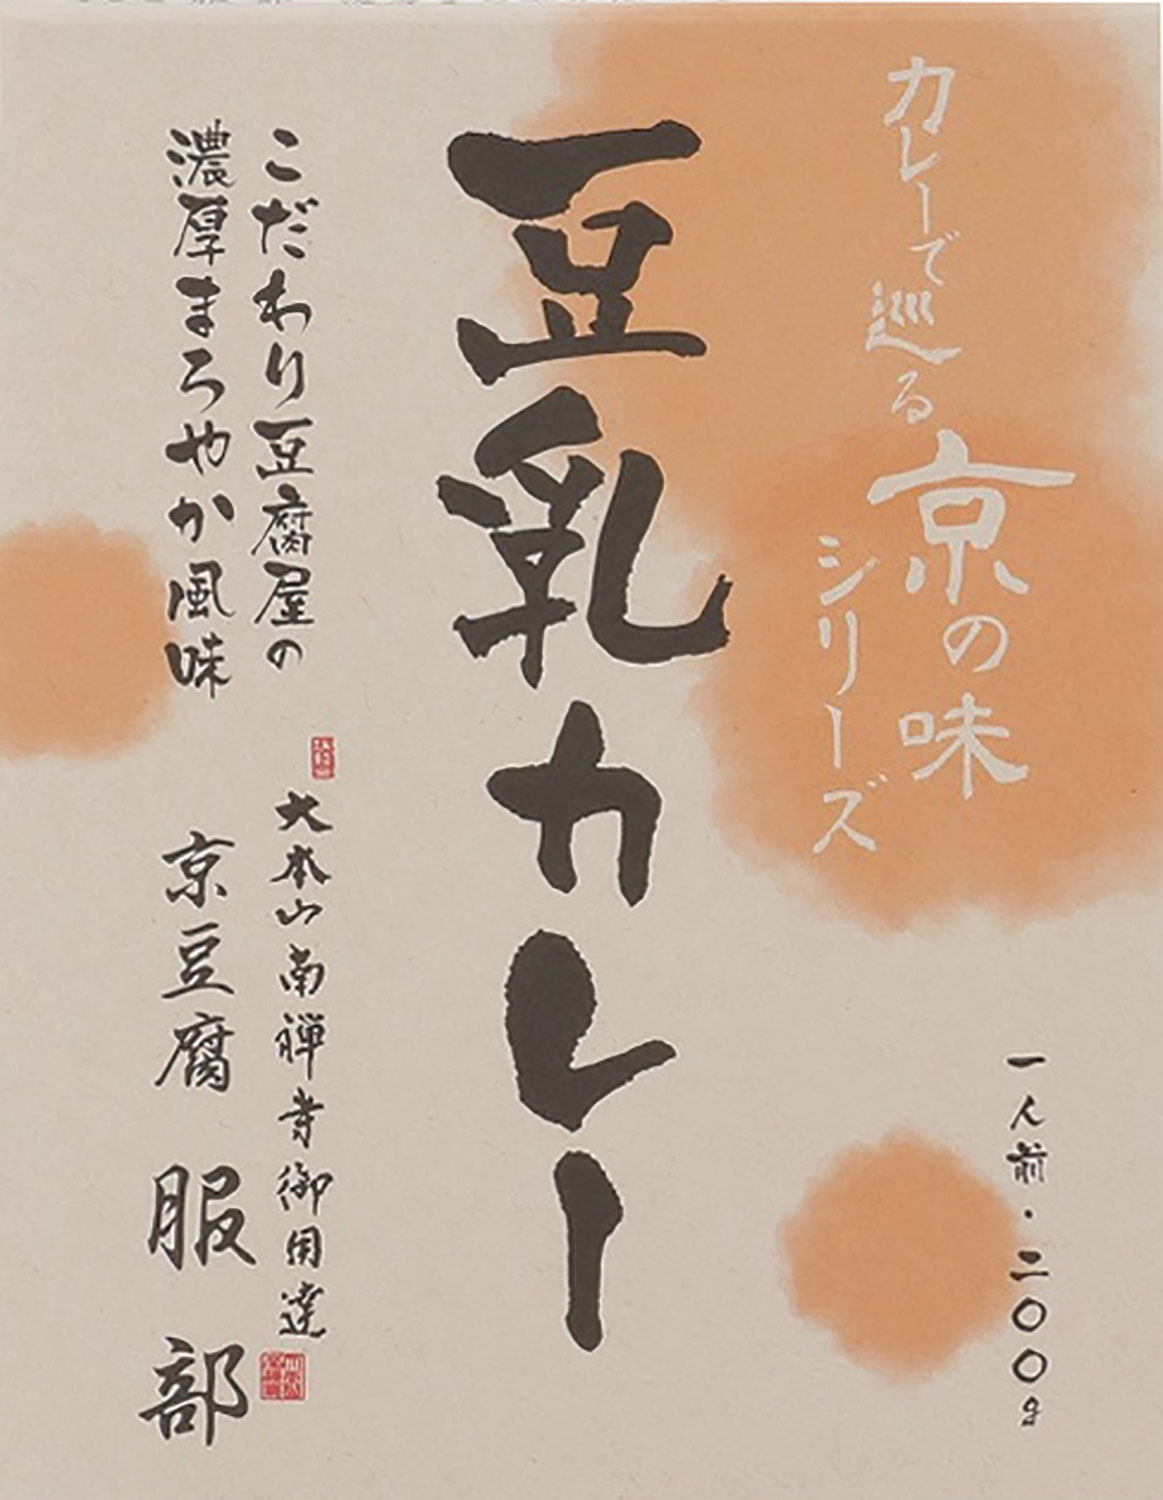 カレーで巡る京の味
シリーズ
一人前・二〇〇g
豆乳カレー
こだわり豆腐屋の
濃厚まろやか風味
大本山南禅寺御用達
京豆腐 服部